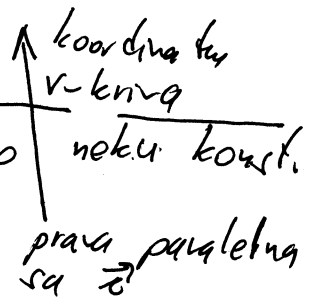 koordinatna
v-kriva
0 neku konst.
prava paralelna
sa